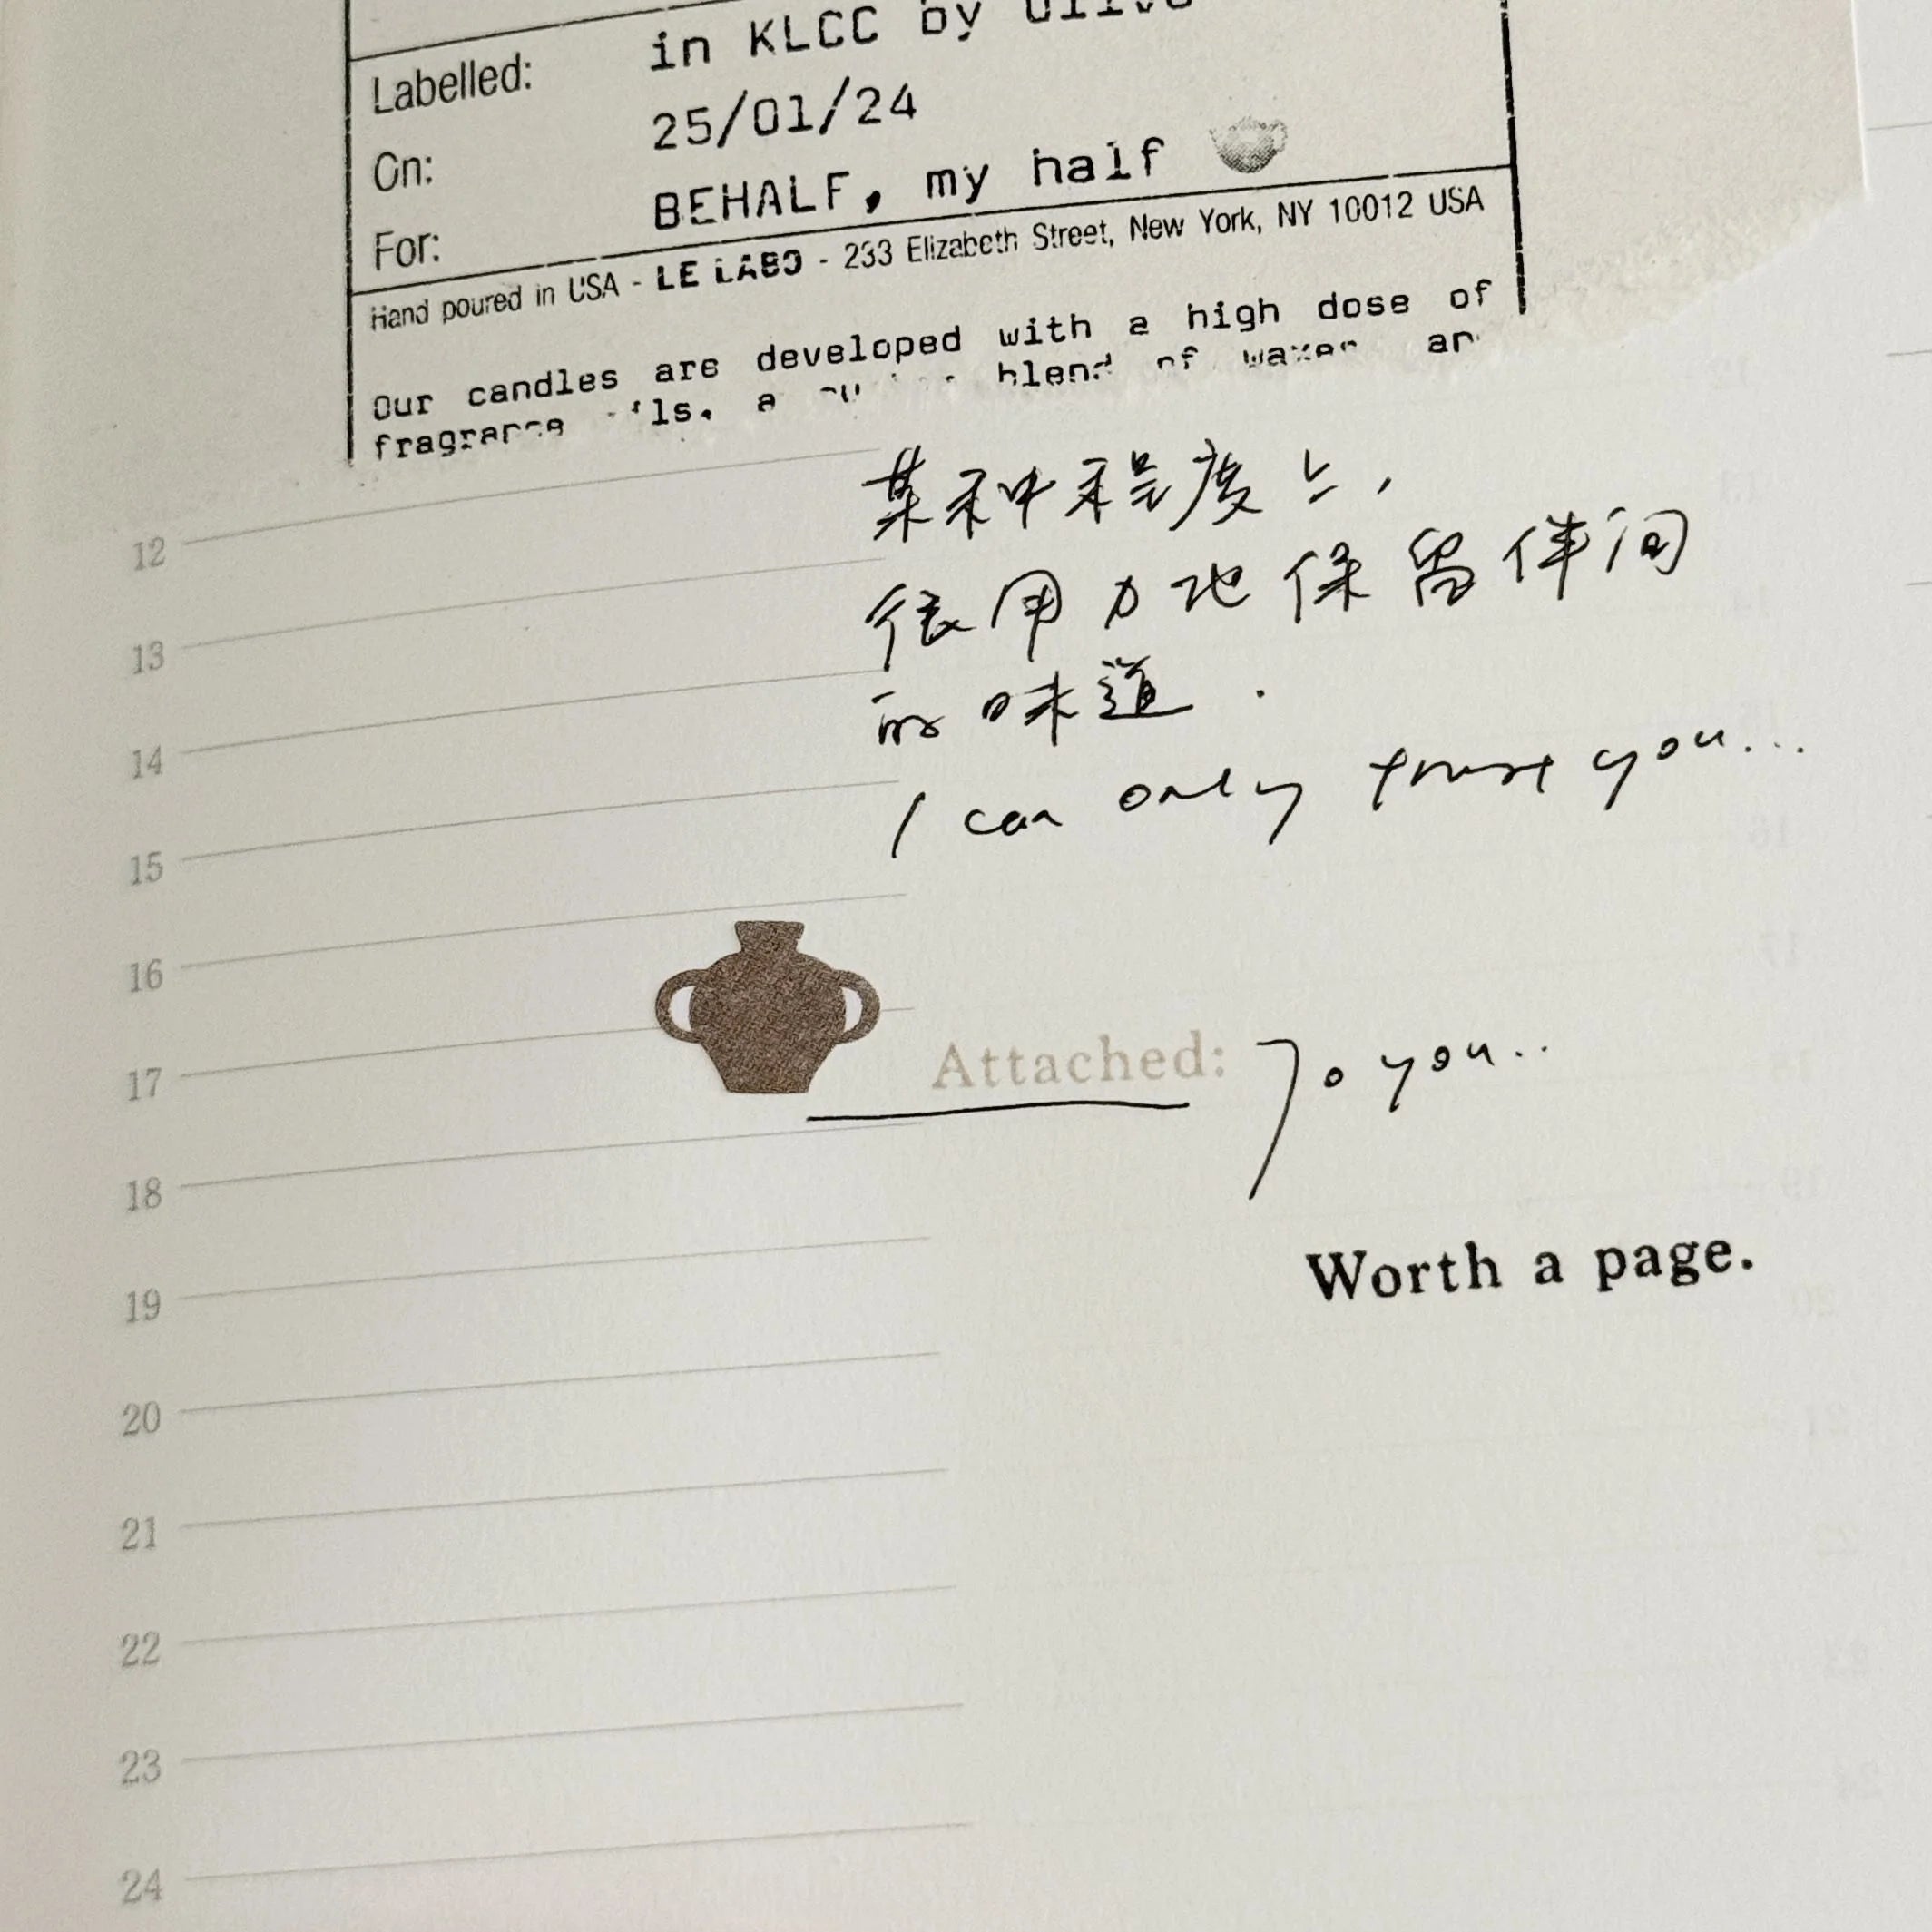 in KLCC by
Labelled:
25/01/24
On:
BEHALF, my half
For:
Hand poured in USA - LE LABO - 233 Elizabeth Street, New York, NY 10012 USA
Our candles are developed with a high dose of
blend of
某种程度上,
很用力地保留伴间
的味道.
I can only trust you...
Attached: To you..
Worth a page.
12
13
14
15
16
17
18
19
20
21
22
23
24